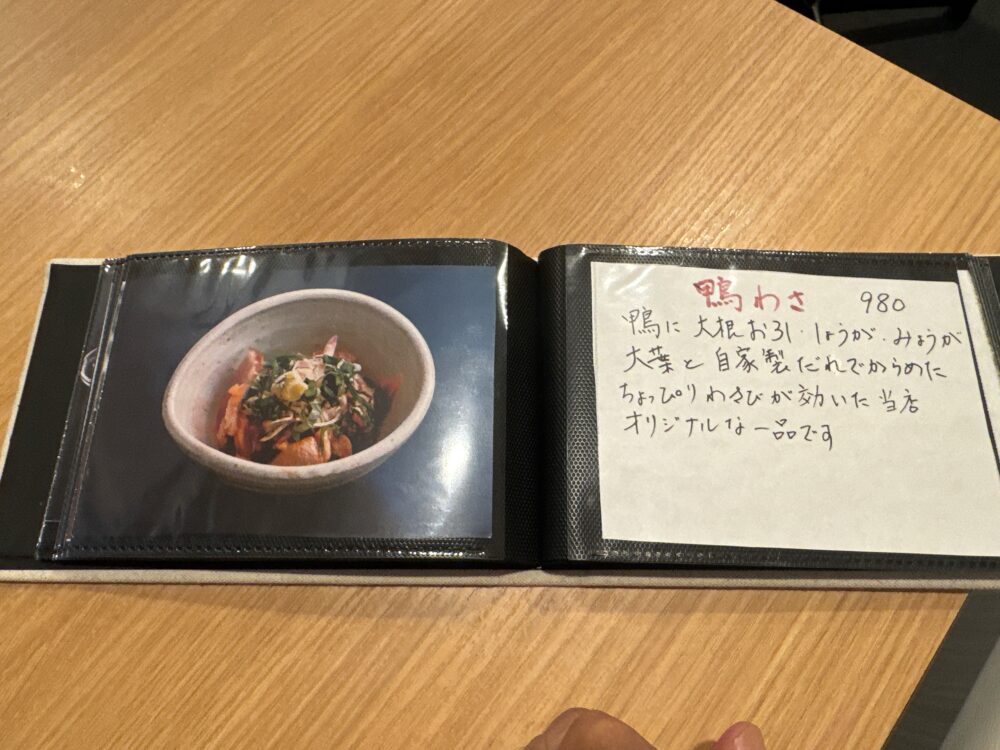 鴨わさ 980
鴨に 大根お引・しょうが・みょうが
大葉と 自家製だれでからめた
ちょっぴりわさびが効いた当店
オリジナルな一品です